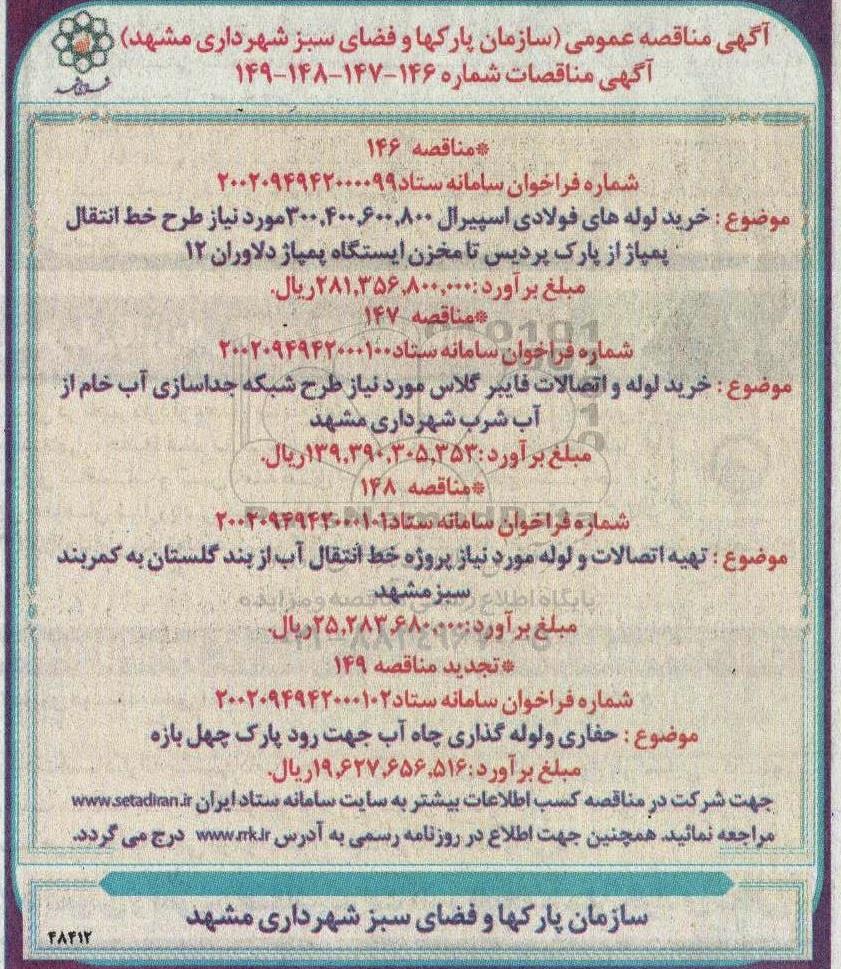 آگهی مناقصه عمومی (سازمان پارکها و فضای سبز شهرداری مشهد)
آگهی مناقصات شماره ۱۴۶-۱۴۷-۱۴۸-۱۴۹
*مناقصه ۱۴۶
شماره فراخوان سامانه ستاد۲۰۰۲۰۹۴۹۴۲۰۰۰۰۹۹
موضوع : خرید لوله های فولادی اسپیرال ۳۰۰,۴۰۰,۶۰۰,۸۰۰مورد نیاز طرح خط انتقال
پمپاژ از پارک پردیس تا مخزن ایستگاه پمپاژ دلاوران ۱۲
مبلغ برآورد:۲۸۱,۳۵۶,۸۰۰,۰۰۰ریال.
*مناقصه ۱۴۷
شماره فراخوان سامانه ستاد۲۰۰۲۰۹۴۹۴۲۰۰۰۱۰۰
موضوع : خرید لوله و اتصالات فایبر گلاس مورد نیاز طرح شبکه جداسازی آب خام از
آب شرب شهرداری مشهد
مبلغ برآورد:۱۳۹,۳۹۰,۳۰۵,۳۵۳ریال.
*مناقصه ۱۴۸
شماره فراخوان سامانه ستاد۲۰۰۲۰۹۴۹۴۲۰۰۰۱۰۱
موضوع : تهیه اتصالات و لوله مورد نیاز پروژه خط انتقال آب از بند گلستان به کمربند
سبز مشهد
پایگاه اطلاع رسانی مناقصه و مزایده
مبلغ برآورد:۲۵,۲۸۳,۶۸۰,۰۰۰ریال.
*تجدید مناقصه ۱۴۹
شماره فراخوان سامانه ستاد۲۰۰۲۰۹۴۹۴۲۰۰۰۱۰۲
موضوع : حفاری ولوله گذاری چاه آب جهت رود پارک چهل بازه
مبلغ برآورد:۱۹,۶۲۷,۶۵۶,۵۱۶ریال.
جهت شرکت در مناقصه کسب اطلاعات بیشتر به سایت سامانه ستاد ایران www.setadiran.ir
مراجعه نمائید. همچنین جهت اطلاع در روزنامه رسمی به آدرس www.rrk.ir درج می گردد.
سازمان پارکها و فضای سبز شهرداری مشهد
۴۸۴۱۲